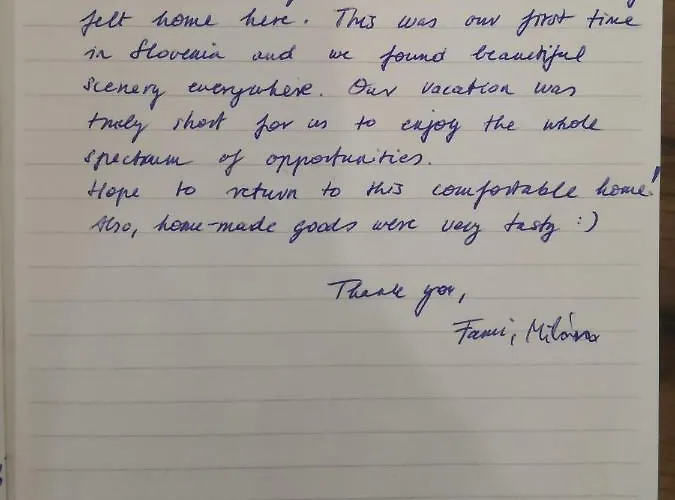 felt home here. This was our first time
in Slovenia and we found beautiful
scenery everywhere. Our vacation was
truly short for us to enjoy the whole
spectrum of opportunities.
Hope to return to this comfortable home!
Also, home-made goods were very tasty :)
Thank you,